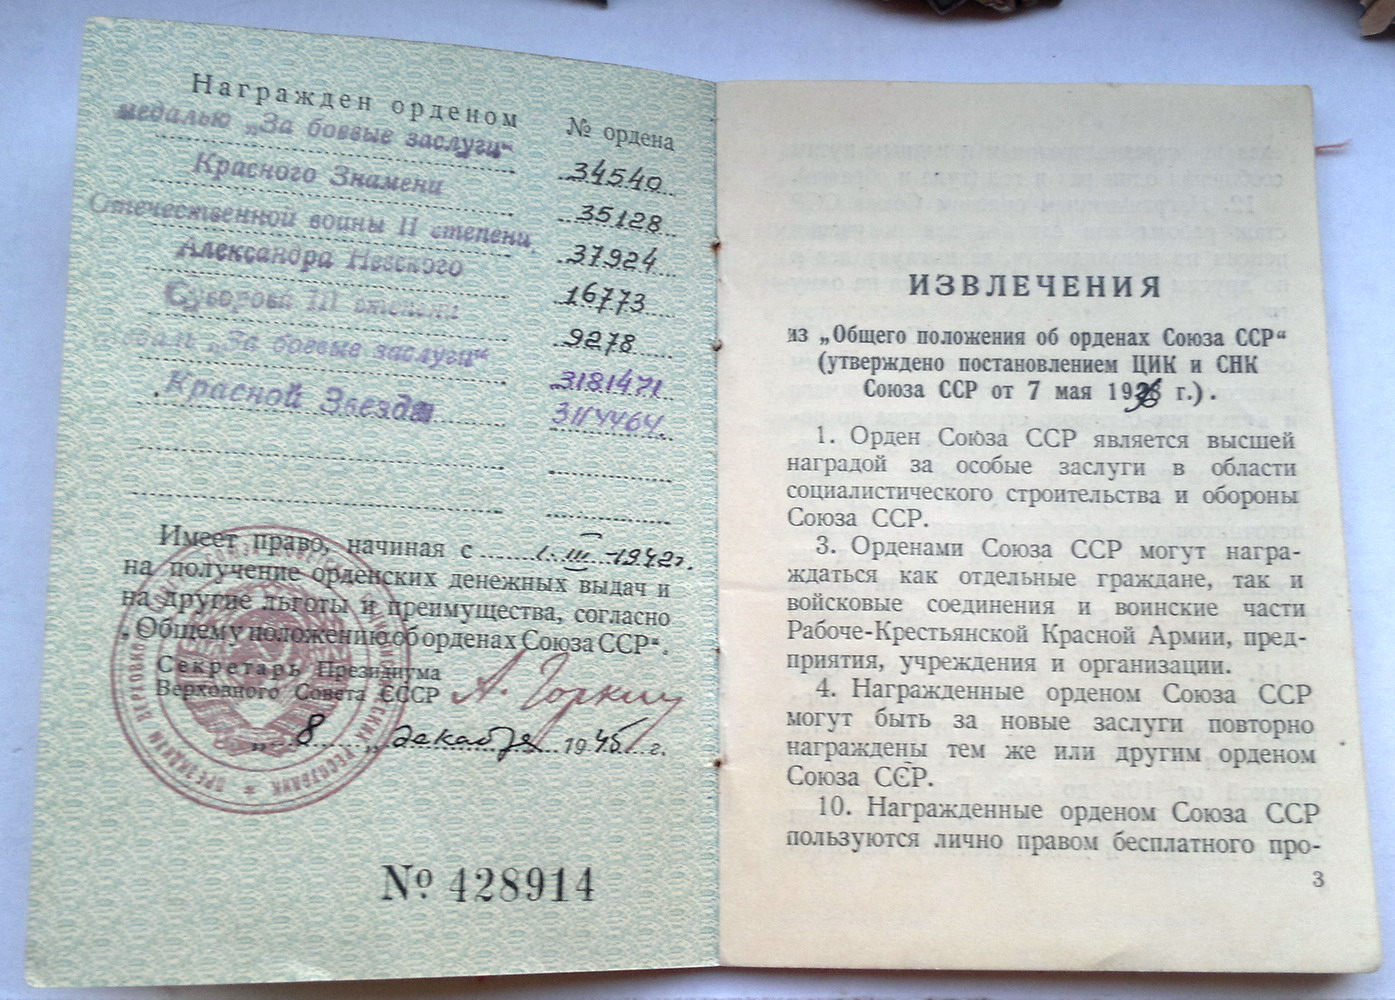 Награжден орденом № ордена
медалью „За боевые заслуги“ 34540
Красного Знамени 35128
Отечественной войны II степени, 37924
Александра Невского 16773
Суворова III степени 9278
медаль „За боевые заслуги“ 3181471
Красной Звезды 3114464
Имеет право, начиная с 1. III-1942г.
на получение орденских денежных выдач и
на другие льготы и преимущества, согласно
„Общему положению об орденах Союза ССР“.
Секретарь Президиума
Верховного Совета СССР А. Горкин
„8„ декабря 1945 г.
№ 428914
ИЗВЛЕЧЕНИЯ
из „Общего положения об орденах Союза ССР“
(утверждено постановлением ЦИК и СНК
Союза ССР от 7 мая 1936 г.).
1. Орден Союза ССР является высшей
наградой за особые заслуги в области
социалистического строительства и обороны
Союза ССР.
3. Орденами Союза ССР могут награ-
ждаться как отдельные граждане, так и
войсковые соединения и воинские части
Рабоче-Крестьянской Красной Армии, пред-
приятия, учреждения и организации.
4. Награжденные орденом Союза ССР
могут быть за новые заслуги повторно
награждены тем же или другим орденом
Союза ССР.
10. Награжденные орденом Союза ССР
пользуются лично правом бесплатного про-
3